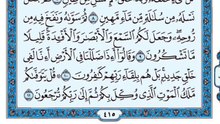 نَسْلَهُۥ مِن سُلَٰلَةٍ مِّن مَّآءٍ مَّهِينٍ ۝٨ ثُمَّ سَوَّىٰهُ وَنَفَخَ فِيهِ مِن
رُّوحِهِۦ وَجَعَلَ لَكُمُ ٱلسَّمْعَ وَٱلْأَبْصَٰرَ وَٱلْأَفْـِٔدَةَ قَلِيلًا
مَّا تَشْكُرُونَ ۝٩ وَقَالُوٓا۟ أَءِذَا ضَلَلْنَا فِى ٱلْأَرْضِ أَءِنَّا لَفِى
خَلْقٍ جَدِيدٍۭ بَلْ هُم بِلِقَآءِ رَبِّهِمْ كَٰفِرُونَ ۝١٠ قُلْ يَتَوَفَّىٰكُم
مَّلَكُ ٱلْمَوْتِ ٱلَّذِى وُكِّلَ بِكُمْ ثُمَّ إِلَىٰ رَبِّكُمْ تُرْجَعُونَ ۝١١
٤١٥